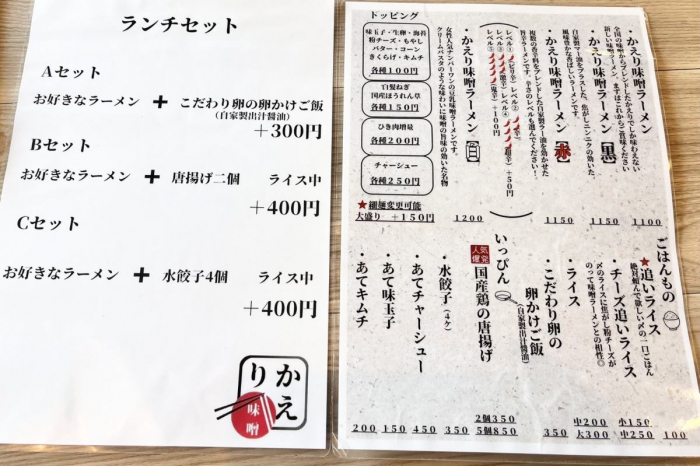 ランチセット
Aセット
お好きなラーメン ＋ こだわり卵の卵かけご飯
(自家製出汁醤油)
＋300円
Bセット
お好きなラーメン ＋ 唐揚げ二個 ライス中
＋400円
Cセット
お好きなラーメン ＋ 水餃子4個 ライス中
＋400円
かえり
味噌
トッピング
味玉子・生卵・海苔
粉チーズ・もやし
バター・コーン
きくらげ・キムチ
各種100円
白髪ねぎ
国産ほうれん草
各種150円
ひき肉増量
各種200円
チャーシュー
各種250円
★細麺変更可能
大盛り ＋150円
・かえり味噌ラーメン
全国の味噌からブレンドしたかえりでしか味わえない
新しい味噌ラーメン。まずはこれからご賞味ください
1100
・かえり味噌ラーメン【黒】
自家製マー油をプラスした、焦がしニンニクの効いた、
風味豊かな香ばしいラーメンです。
1150
・かえり味噌ラーメン【赤】
複数の香辛料をブレンドした自家製ラー油を効かせた
旨辛ラーメンです。辛さのレベルも選んでください！
レベル①(ピリ辛) レベル②(辛)
レベル③(激辛) レベル④(超辛) ＋50円
レベル⑤(鬼辛) ＋100円
1150
・かえり味噌ラーメン
女性人気ナンバーワンの豆乳味噌ラーメンです。
クリームパスタのような味わいに味噌の旨味の効いた名物
1200
ごはんもの
★追いライス
絶対頼んで欲しい〆の一口ごはん
100
・チーズ追いライス
〆のライスに焦がし粉チーズが
のって味噌ラーメンとの相性◎
250
・ライス
小150
中200
大300
・こだわり卵の
卵かけご飯
(自家製出汁醤油)
いっぴん
人気爆発
国産鶏の唐揚げ
2個350
5個850
・水餃子(4ケ)
350
・あてチャーシュー
450
・あて味玉子
150
・あてキムチ
200